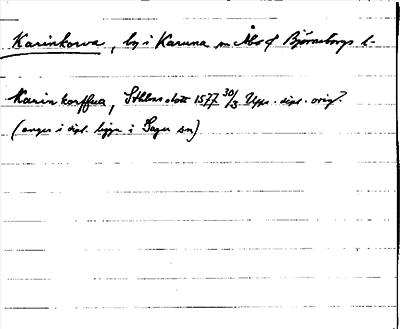 Karinkorva, by i Karuna sn Åbo o Björneborgs l.
Karin korffua, Sthlms slott 1577 30/3 Upps. dipl. orig.
(anges i dipl. ligga i Sagu sn)